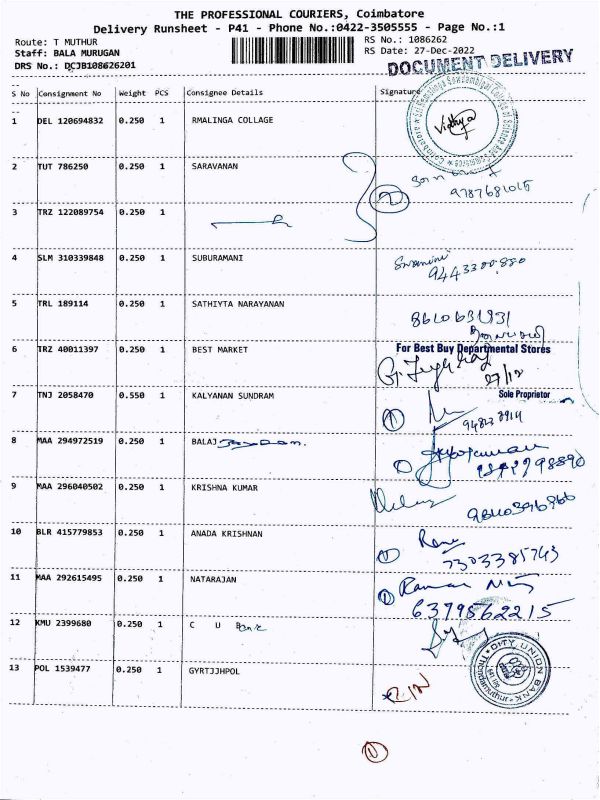 THE PROFESSIONAL COURIERS, Coimbatore
Delivery Runsheet - P41 - Phone No.:0422-3505555 - Page No.:1
Route: T MUTHUR RS No.: 1086262
Staff: BALA MURUGAN RS Date: 27-Dec-2022
DRS No.: DCJB108626201 DOCUMENT DELIVERY
S No Consignment No Weight PCS Consignee Details Signature
1 DEL 120694832 0.250 1 RMALINGA COLLAGE Vidhya
2 TUT 786250 0.250 1 SARAVANAN
9787681015
3 TRZ 122089754 0.250 1 2
4 SLM 310339848 0.250 1 SUBURAMANI
9443300880
5 TRL 189114 0.250 1 SATHIYTA NARAYANAN 8610631931
6 TRZ 40011397 0.250 1 BEST MARKET For Best Buy Departmental Stores
27/12
Sole Proprietor
7 TNJ 2058470 0.550 1 KALYANAN SUNDRAM 1
8 MAA 294972519 0.250 1 BALAJ
9 MAA 296040502 0.250 1 KRISHNA KUMAR
10 BLR 415779853 0.250 1 ANADA KRISHNAN 1
7303385743
11 MAA 292615495 0.250 1 NATARAJAN 1
6379862215
12 KMU 2399680 0.250 1 C U Bank
CITY UNION BANK
13 POL 1539477 0.250 1 GYRTJJHPOL
1